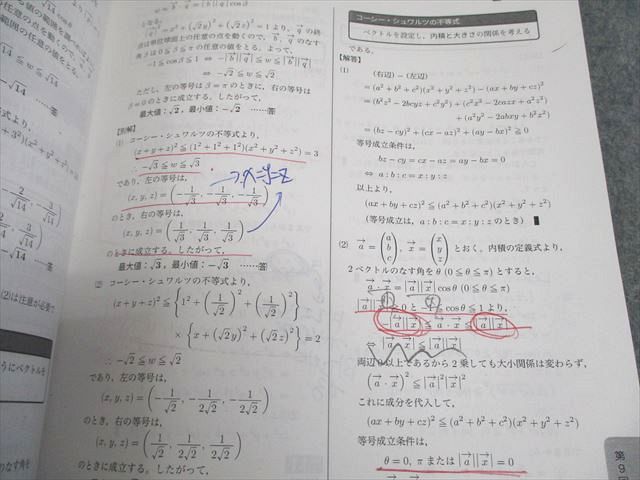 となる。
点は単位球面上の任意の点を動くので、
角βは0≦β≦πの任意の値をとる。よって、
-1≦cosβ≦1 ⇔ -|b||q|≦w≦|b||q|
⇔ -√2≦w≦√2
ただし、左の等号はβ=πのときに、右の等号は
β=0のときに成立する。したがって、
最大値:√2、最小値:-√2 ……答
【別解】
(1) コーシー・シュワルツの不等式より、
(x+y+z)²≦(1²+1²+1²)(x²+y²+z²)=3
∴ -√3≦w≦√3
x=y=z
であり、左の等号は、
(x,y,z)=(-1/√3, -1/√3, -1/√3)
のとき、右の等号は、
(x,y,z)=(1/√3, 1/√3, 1/√3)
のときに成立する。したがって、
最大値:√3、最小値:-√3 ……答
(2) コーシー・シュワルツの不等式より、
(x+y+z)²≦{1²+(1/√2)²+(1/√2)²}
×{x+(√2y)²+(√2z)²}=2
∴ -√2≦w≦√2
であり、左の等号は、
(x,y,z)=(-1/√2, -1/2√2, -1/2√2)
のとき、右の等号は、
(x,y,z)=(1/√2, 1/2√2, 1/2√2)
のときに成立する。したがって、
コーシー・シュワルツの不等式
ベクトルを設定し、内積と大きさの関係を考える
である。
【解答】
(1) (右辺)-(左辺)
=(a²+b²+c²)(x²+y²+z²)-(ax+by+cz)²
=(b²z²-2bcyz+c²y²)+(c²x²-2cazx+a²z²)
+(a²y²-2abxy+b²x²)
=(bz-cy)²+(cx-az)²+(ay-bx)²≧0
等号成立条件は、
bz-cy=cx-az=ay-bx=0
⇔ a:b:c=x:y:z
以上より、
(ax+by+cz)²≦(a²+b²+c²)(x²+y²+z²)
(等号成立は、a:b:c=x:y:zのとき) ■
(2) a=(a b c), x=(x y z) とおく。内積の定義式より、
2ベクトルのなす角をθ(0≦θ≦π)とすると、
a・x=|a||x|cosθ(0≦θ≦π)
|a||x|≧0と-1≦cosθ≦1より、
-|a||x|≦a・x≦|a||x|
⇔ |a・x|≦|a||x|
両辺0以上であるから2乗しても大小関係は変わらず、
(a・x)²≦|a|²|x|²
これに成分を代入して、
(ax+by+cz)²≦(a²+b²+c²)(x²+y²+z²)
等号成立条件は、
θ=0, πまたは|a||x|=0
第9